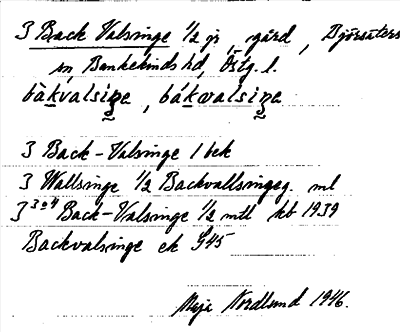 3 Back Valsinge 1/2 gj, gård, Björsäters
sn, Bankekinds hd, Östg. l.
bàkvalsiŋe, bákwalsiŋe
3 Back-Valsinge 1 bek
3 Wallsinge 1/2 Backvallsingeg. ml
3 Back-Valsinge 1/2 mtl kb 1939
Backvalsinge ek S45
Maja Nordlund 1946.